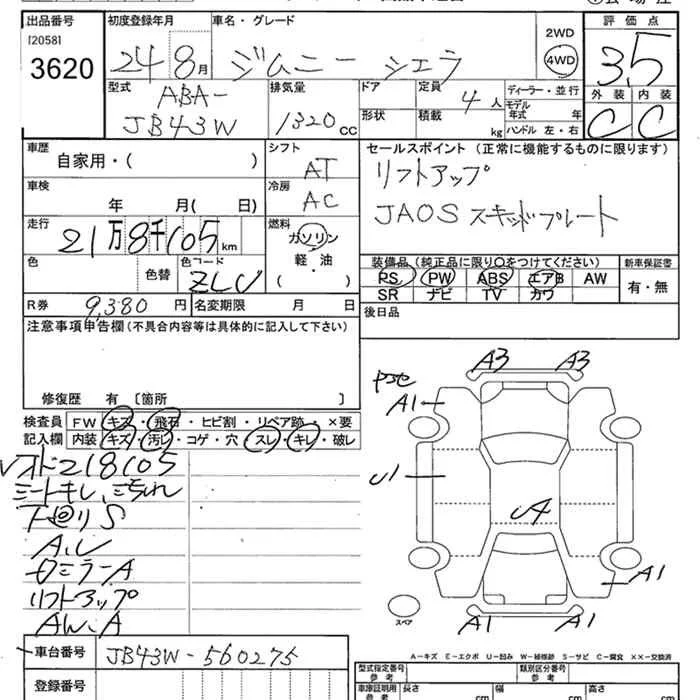 出品番号 初度登録年月 車名・グレード 評価点
[2058]
3620
24 8月 ジムニー シエラ 2WD 4WD 3.5
型式 ABA- JB43W 排気量 1320 CC ドア 定員 4人 ディーラー・並行
形状 積載 kg モデル年式 年
ハンドル 左・右
外装 内装
C C
車歴 自家用・( ) シフト AT
セールスポイント (正常に機能するものに限ります)
リフトアップ
JAOS スキッドプレート
車検 年 月( 日) 冷房 AC
走行 21万8千105 km 燃料 ガソリン
軽・油
( )
色 色替 色コード ZLV
装備品(純正品に限り○をつけてください) 新車保証書
PS PW ABS エアB AW 有・無
SR ナビ TV カワ
R券 9,380 円 名変期限 月 日
後日品
注意事項申告欄(不具合内容等は具体的に記入して下さい)
修復歴 有 [箇所 ]
検査員記入欄 FW キズ・飛石・ヒビ割・リペア跡・×要
内装 キズ・汚レ・コゲ・穴・スレ・キレ・破レ
218105
下回りS
ミラーA
リフトアップ
AW、A
A3 A3
A1
U1
A
A1
A1 A1
スペア
A-キズ E-エクボ U-凹み W-補修跡 S-サビ C-腐食 ××-交換済
車台番号 JB43W-560275
登録番号
型式指定番号 参考 類別区分番号 参考
車庫証明用 参考 長さ cm 幅 cm 高さ cm